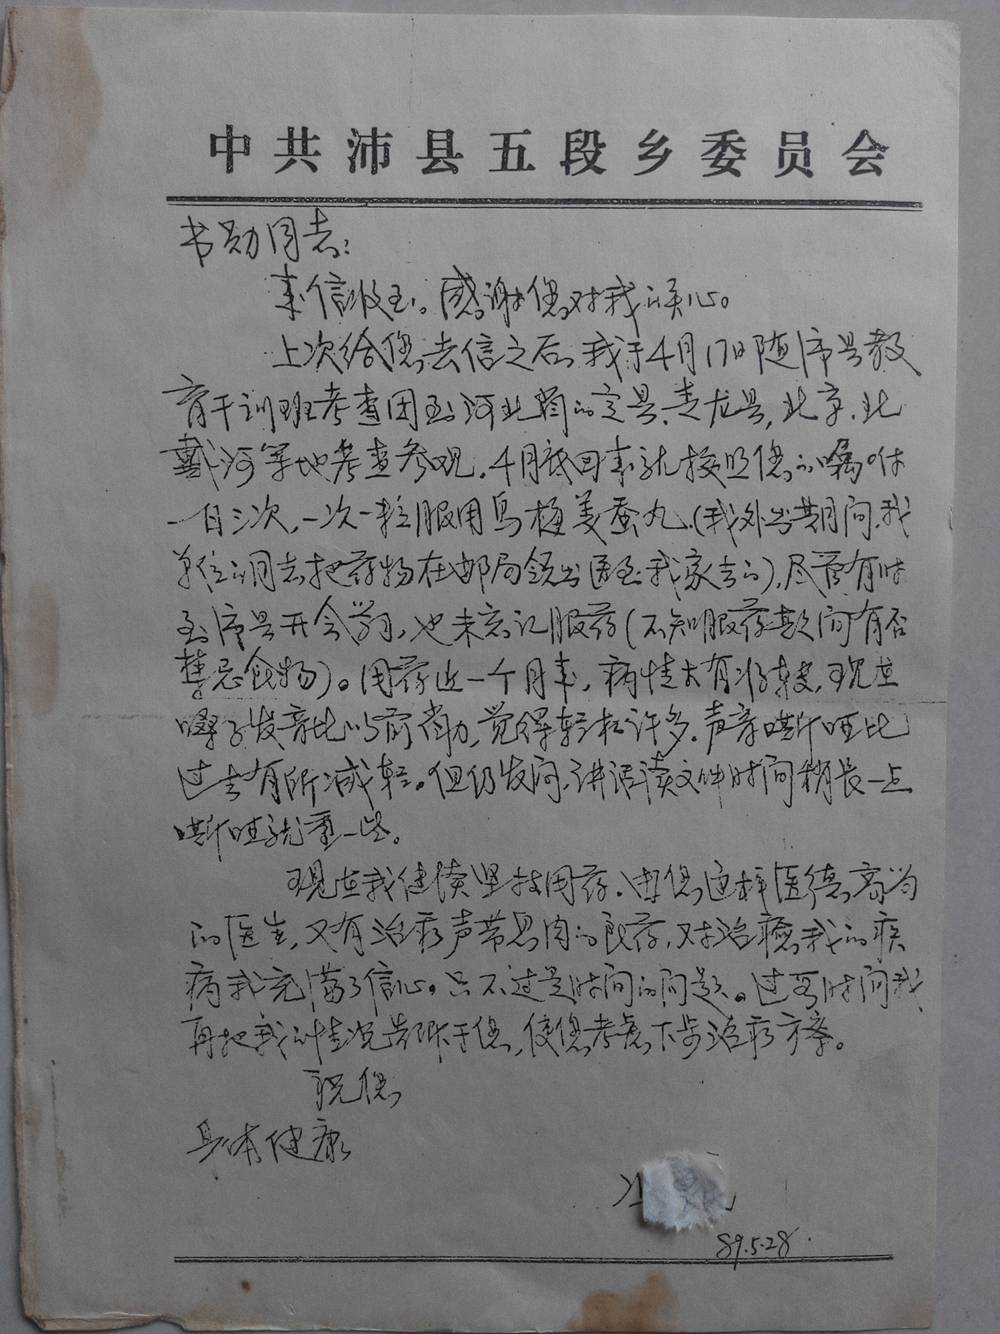 中共沛县五段乡委员会
书勋同志：
来信收到。感谢您对我的关心。
上次给您去信之后，我于4月17日随沛县教
育干训班考查团到河北省的定县、青龙县，北京、北
戴河等地考查参观，4月底回来就按照您的嘱咐
一日三次，一次一粒服用乌梅姜蚕丸（我外出期间，我
单位的同志把药物在邮局领出送到我家去的），尽管有时
到沛县开会学习，也未忘记服药（不知服药期间有否
禁忌食物）。用药近一个月来，病情大有好转，现在
嗓子发音比以前省力，觉得轻松许多，声音嘶哑比
过去有所减轻。但仍发闷，讲话读文件时间稍长一点
嘶哑就重一些。
现在我继续坚持用药，由您这样医德高尚
的医生，又有治疗声带息肉的良药，对治愈我的疾
病我充满了信心。只不过是时间的问题。过些时间我
再把我的情况告诉于您，使您考虑下步治疗方案。
祝您
身体健康
89.5.28.